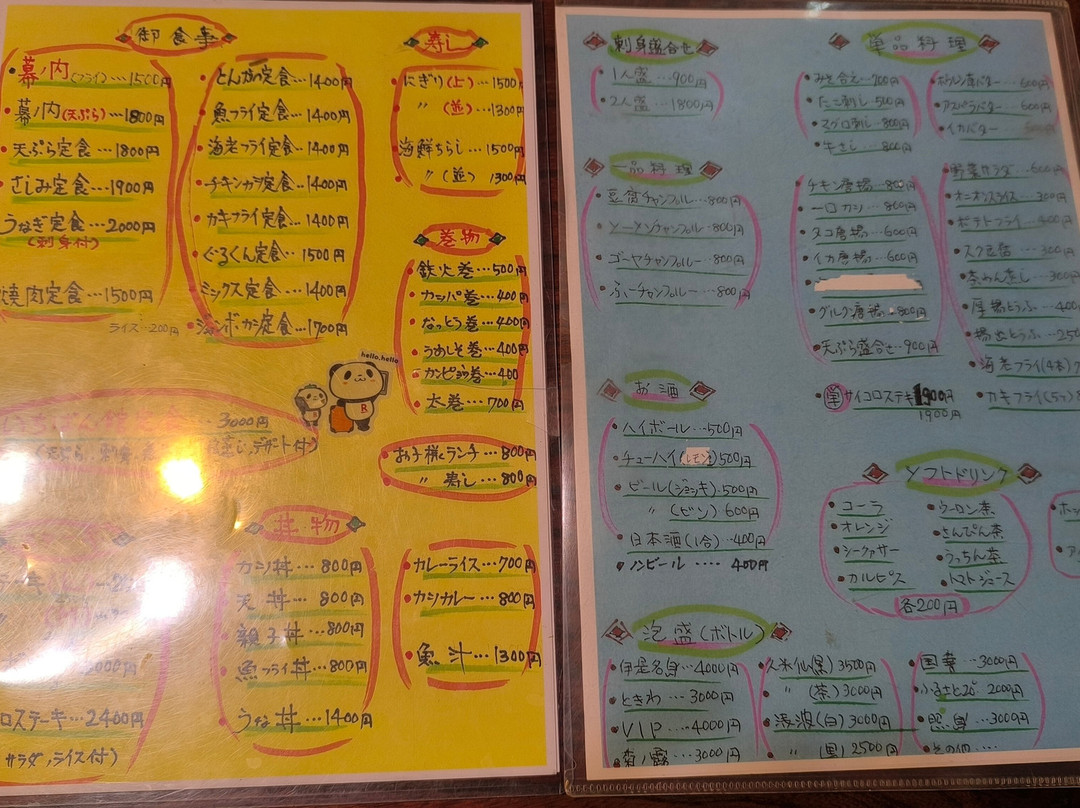 御食事
・幕ノ内(フライ)…1500円
・幕ノ内(天ぷら)…1800円
・天ぷら定食…1800円
・さしみ定食…1900円
・うなぎ定食…2000円
(刺身付)
焼肉定食…1500円
ライス…200円
・とんかつ定食…1400円
・魚フライ定食…1400円
・海老フライ定食…1400円
・チキンカツ定食…1400円
・カキフライ定食…1400円
・ぐるくん定食…1500円
・ミックス定食…1400円
・ジャンボカツ定食…1700円
寿し
・にぎり(上)…1500円
〃(並)…1300円
・海鮮ちらし…1500円
・〃(並)1300円
巻物
・鉄火巻…500円
・カッパ巻…400円
・なっとう巻…400円
・うめしそ巻…400円
・カンピョウ巻…400
・太巻…700円
hello.hello
R
…3000円
デザート付)
・お子様ランチ…800円
〃寿し…800円
丼物
・カツ丼…800円
・天丼…800円
・親子丼…800円
・魚フライ丼…800円
・うな丼…1400円
・カレーライス…700円
・カツカレー…800円
・魚汁…1300円
ロステーキ…2400円
サラダ,ライス付)
刺身盛合せ
・1人盛…900円
・2人盛…1800円
一品料理
・豆腐チャンプルー…800円
・ソーメンチャンプルー…800円
・ゴーヤチャンプルー…800円
・ふーチャンプルー…800円
お酒
・ハイボール…500円
・チューハイ(レモン)500円
・ビール(ジョッキ)500円
〃(ビン)600円
・日本酒(1合)…400円
・ノンビール…400円
泡盛(ボトル)
・伊是名島…4000円
・ときわ…3000円
・VIP…4000円
・森ノ露…3000円
・久米仙(黒)3500円
〃(茶)3000円
・濤波(白)3000円
〃(黒)2500円
・国華…3000円
・ふるさと20°2000円
・照島…3000円
・その他…
単品料理
・みそ合え…700円
・たこ刺し…500円
・マグロ刺し…800円
・牛さし…800円
・チキン唐揚…800円
・一口カツ…800円
・タコ唐揚…600円
・イカ唐揚…600円
・グルクン唐揚…800円
・天ぷら盛合せ…900円
・(単)サイコロステーキ1900円
1900円
・ホウレン草バター…600円
・アスパラバター…600円
・イカバター
・野菜サラダ…600円
・オニオンスライス…300円
・ポテトフライ…400円
・スク豆腐…300円
・茶わん蒸し…300円
・厚揚とうふ…400
・揚出とうふ…250
・海老フライ(4本)
・カキフライ(5つ)
ソフトドリンク
・コーラ
・オレンジ
・シークヮサー
・カルピス
・ウーロン茶
・さんぴん茶
・うっちん茶
・トマトジュース
各200円